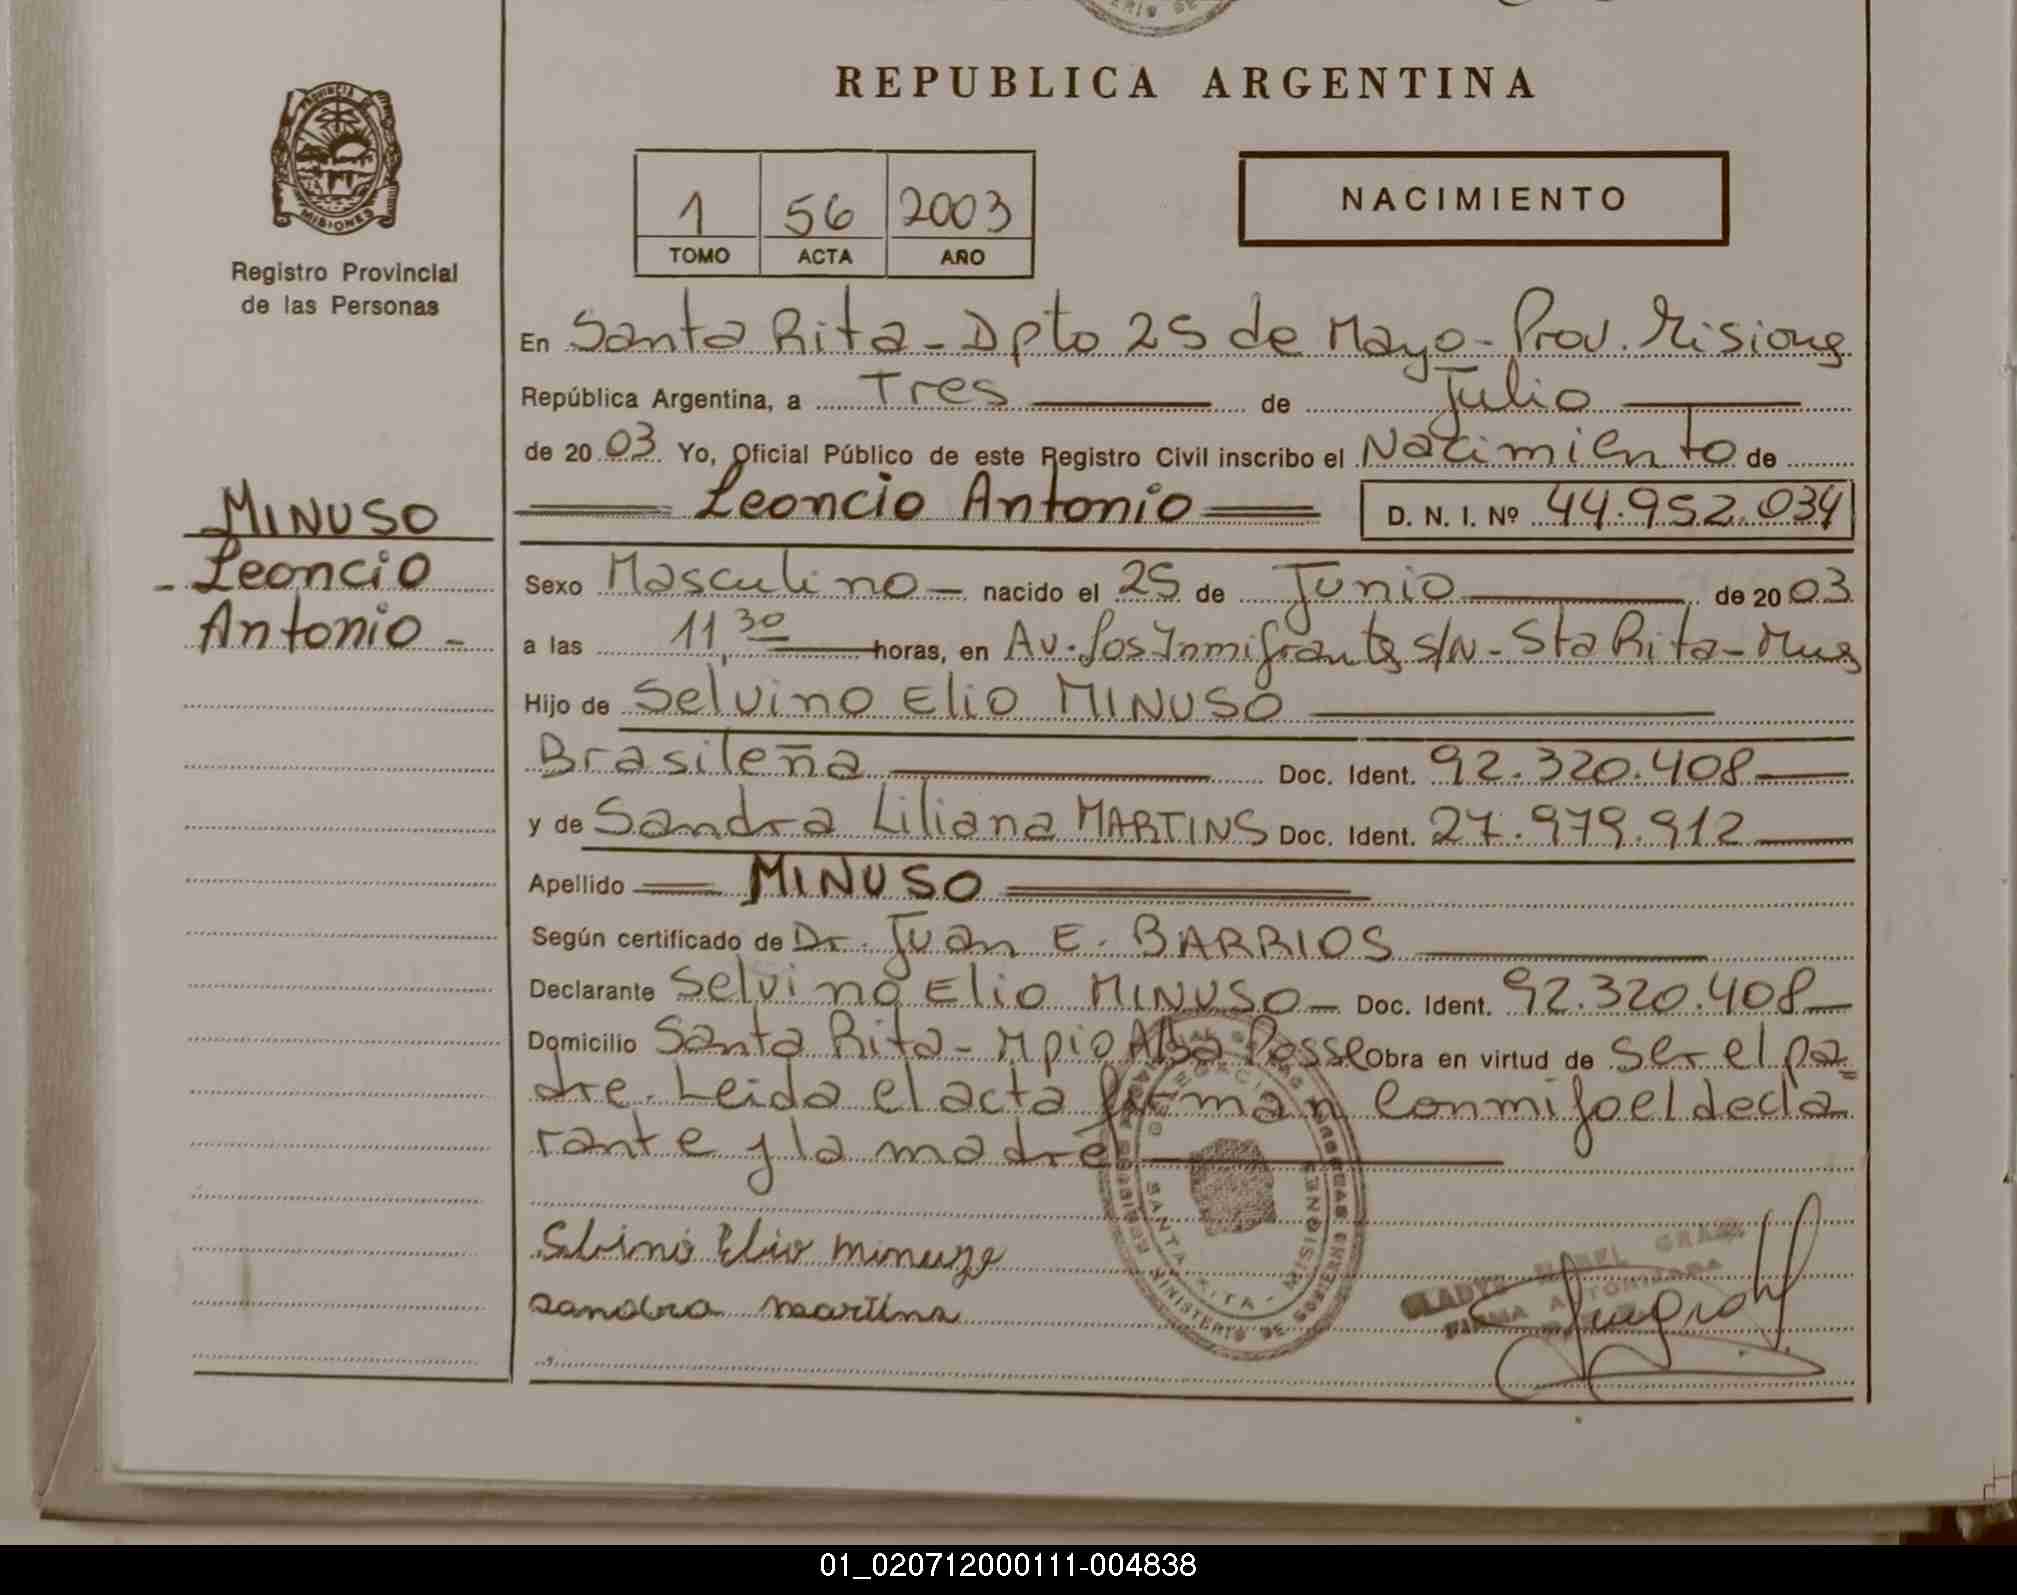 REPUBLICA ARGENTINA
PROVINCIA DE
MISIONES
Registro Provincial
de las Personas
1 56 2003
TOMO ACTA AÑO
NACIMIENTO
En Santa Rita - Dpto 25 de Mayo - Prov. Misiones
República Argentina, a Tres de Julio
de 2003 Yo, Oficial Público de este Registro Civil inscribo el Nacimiento de
Leoncio Antonio D. N. I. Nº 44.952.034
MINUSO
Leoncio
Antonio -
Sexo Masculino - nacido el 25 de Junio de 2003
a las 11,30 horas, en Av. Los Inmigrantes s/N - Sta Rita - Mnes
Hijo de Selvino Elio MINUSO
Brasileña Doc. Ident. 92.320.408
y de Sandra Liliana MARTINS Doc. Ident. 27.979.912
Apellido MINUSO
Según certificado de Dr. Juan E. BARRIOS
Declarante Selvino Elio MINUSO - Doc. Ident. 92.320.408
Domicilio Santa Rita - Mpio Alba Posse Obra en virtud de ser el pa
dre. Leida el acta firman conmigo el decla
rante y la madre
SANTA RITA - MISIONES
MINISTERIO DE GOBIERNO
Elio
sandra martins
GLADYS
FIRMA AUTORIZADA
01_020712000111-004838